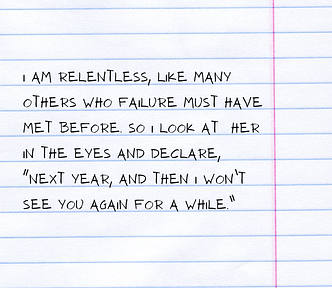 I AM RELENTLESS, LIKE MANY
OTHERS WHO FAILURE MUST HAVE
MET BEFORE. SO I LOOK AT HER
IN THE EYES AND DECLARE,
"NEXT YEAR, AND THEN I WON'T
SEE YOU AGAIN FOR A WHILE."